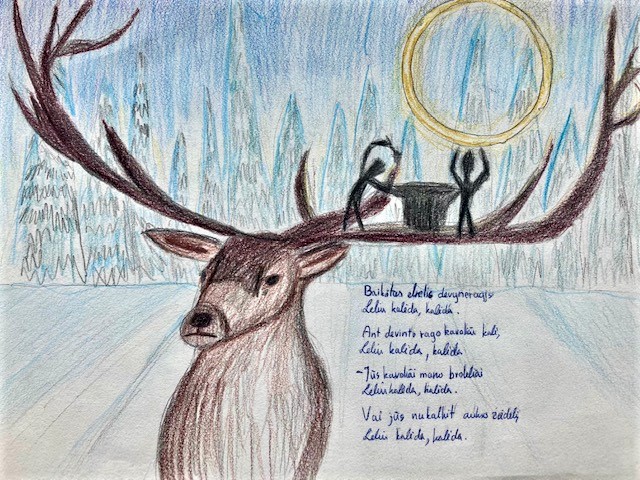 Baikštus elnelis devyneragis
Leliu kalėda, kalėda.
Ant devinto rago kavoliai kali,
Leliu kalėda, kalėda
-Jūs kavoliai mano broleliai
Leliu kalėda, kalėda.
Vai jūs nukalkit aukso žiedelį,
Leliu kalėda, kalėda.